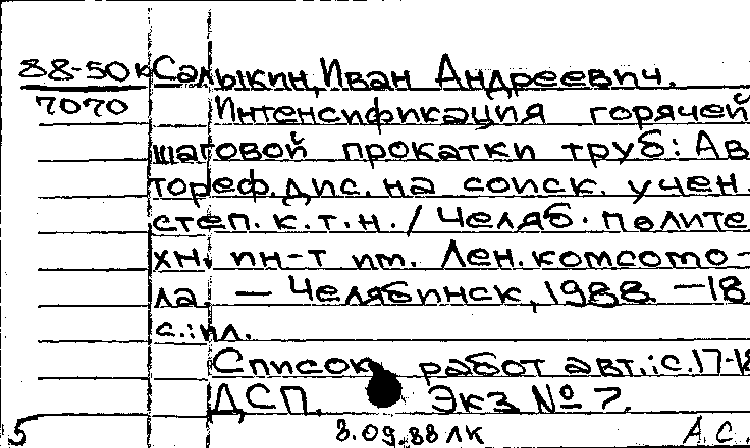 88-50к Салыкин, Иван Андреевич.
7070 Интенсификация горячей
шаговой прокатки труб: Ав
тореф. дис. на соиск. учен.
степ. к.т.н. / Челяб. полите
хн. ин-т им. Лен. комсомо-
ла. — Челябинск, 1988. — 18
с.: ил.
Список работ авт.: с. 17-18
ДСП. Экз № 7.
5 3.09.88 ЛК А.С.